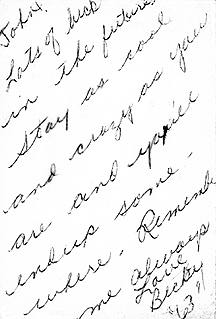 John,
Lots of luck
in the future.
Stay as cool
and crazy as you
are and you'll
endup some-
where. Remember
me always
Love
Becky
"63"